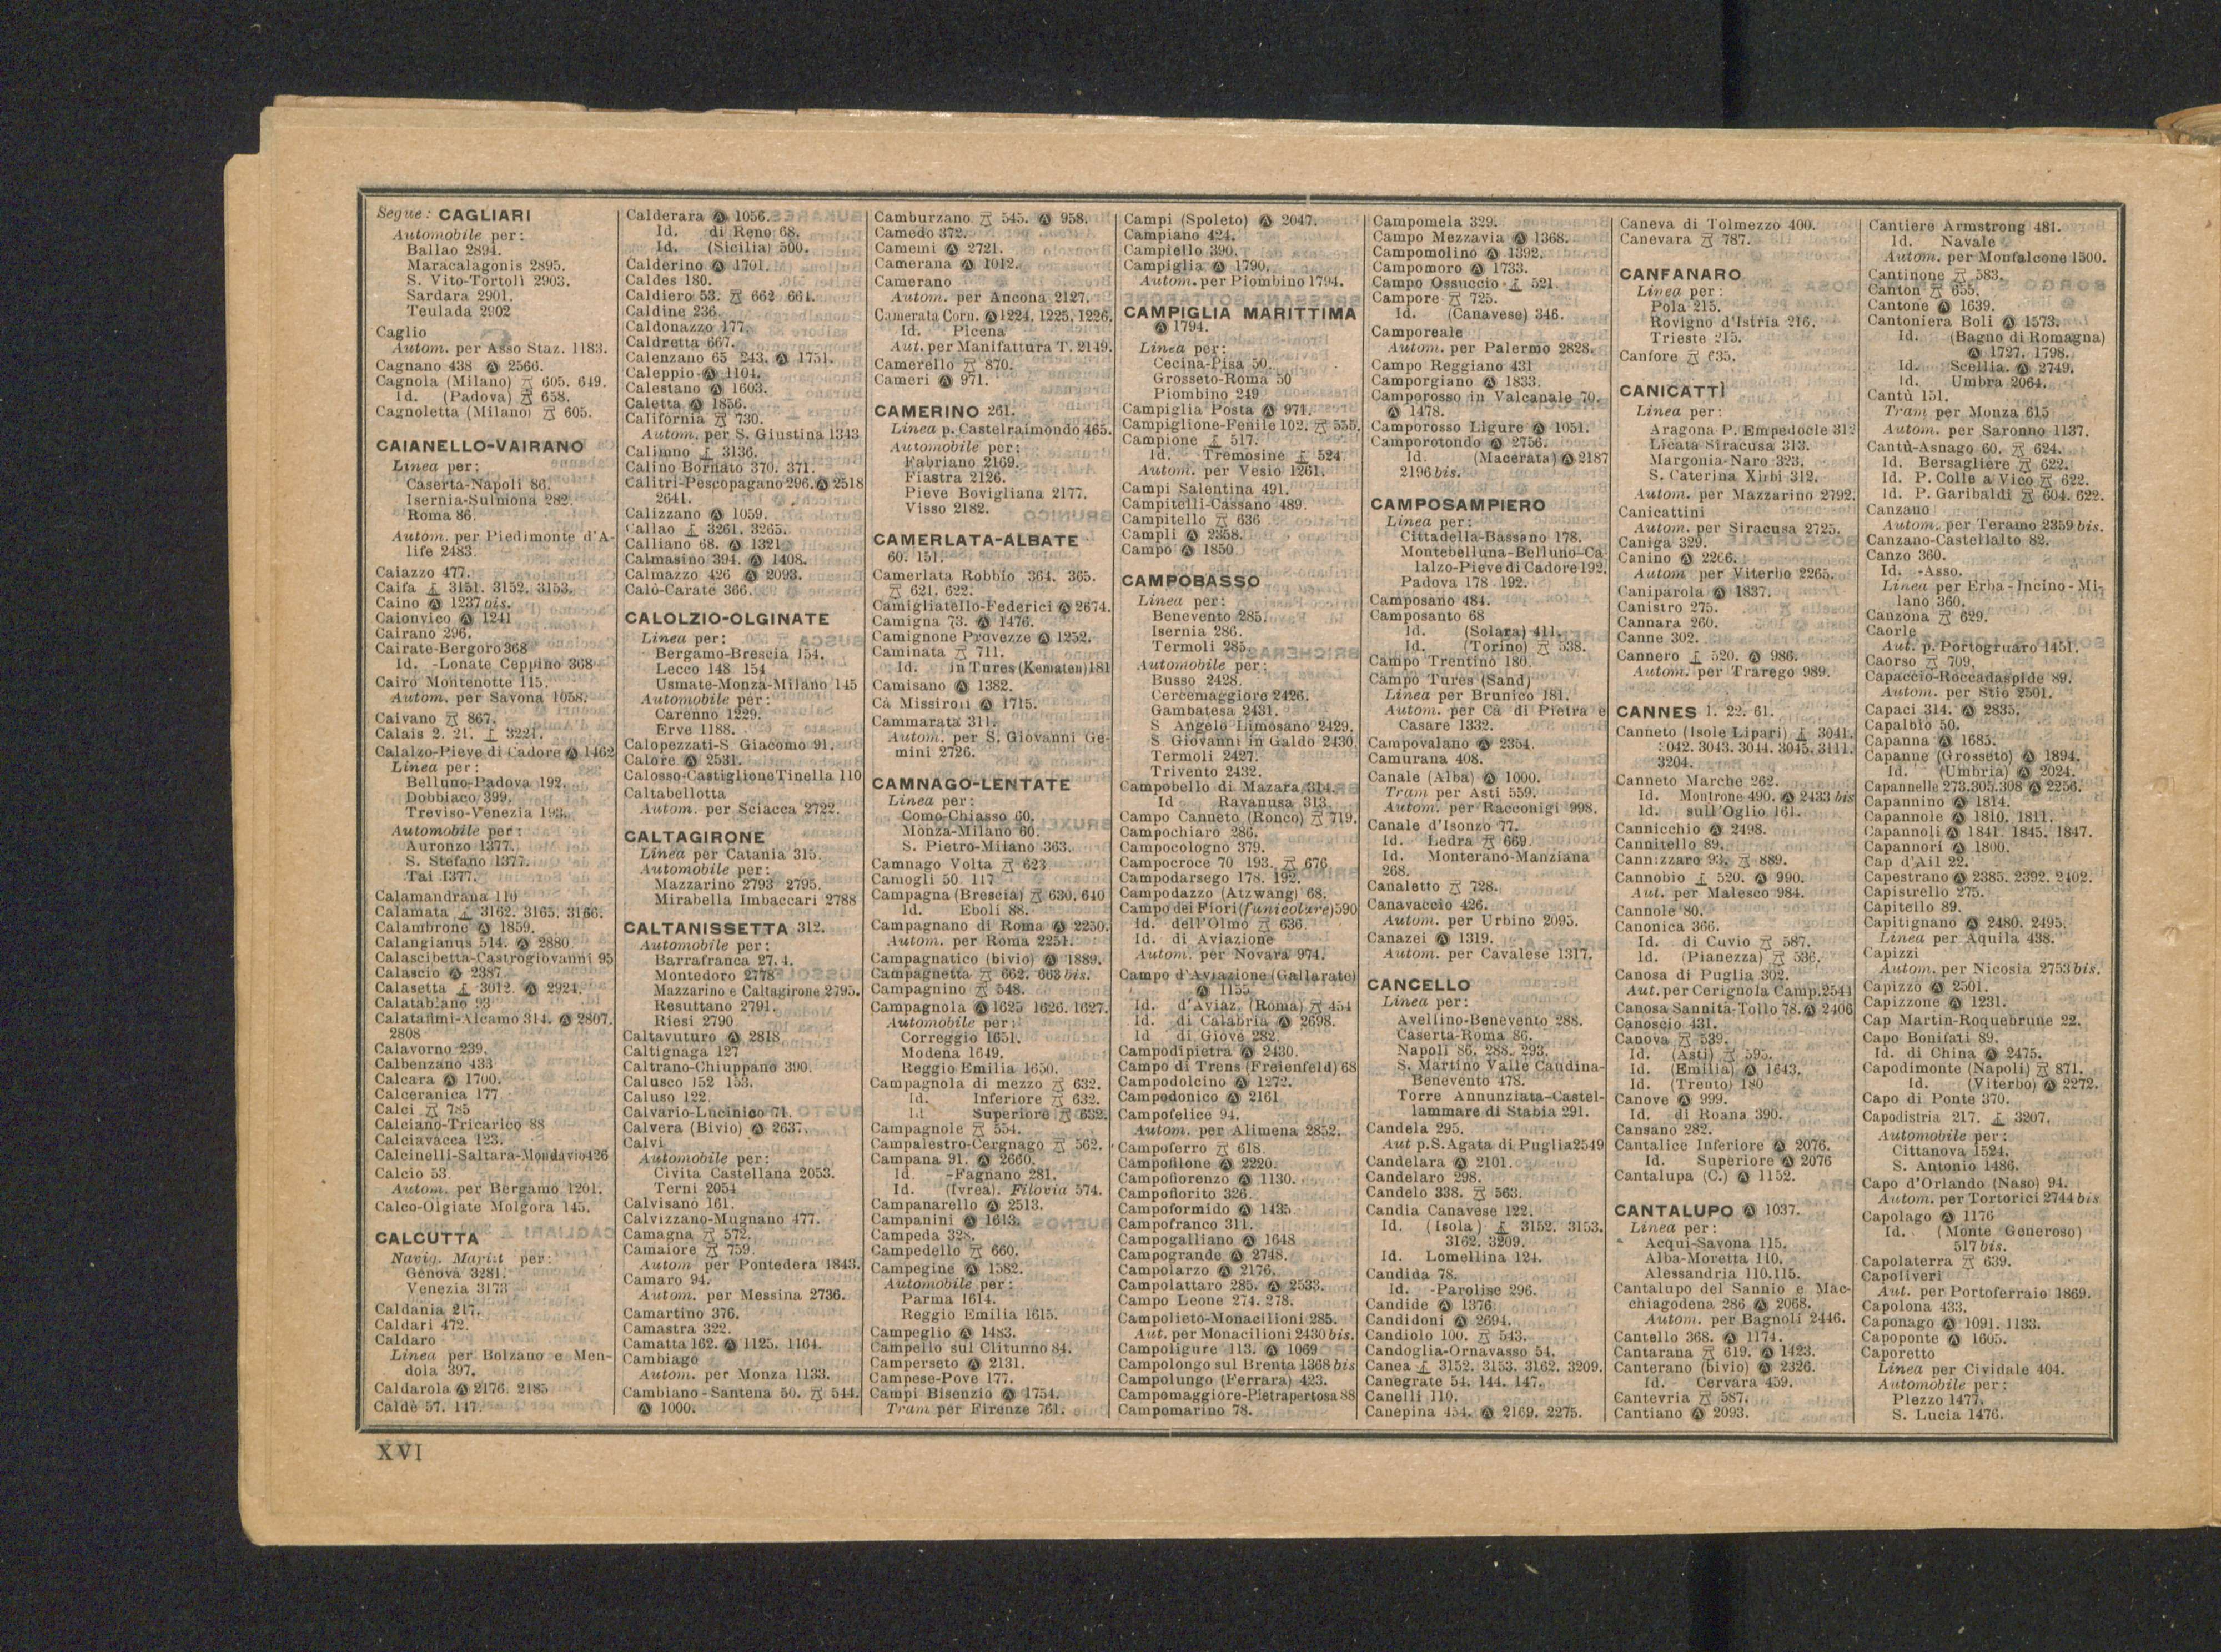 Segue: CAGLIARI
Automobile per:
Ballao 2894.
Maracalagonis 2895.
S. Vito-Tortolì 2903.
Sardara 2901.
Teulada 2902
Caglio
Autom. per Asso Staz. 1183.
Cagnano 438 Ⓐ 2566.
Cagnola (Milano) 605. 649.
Id. (Padova) 658.
Cagnoletta (Milano) 605.
CAIANELLO-VAIRANO
Linea per:
Caserta-Napoli 86.
Isernia-Sulmona 282.
Roma 86.
Autom. per Piedimonte d'A-
life 2483.
Caiazzo 477.
Caifa 3151. 3152. 3153.
Caino Ⓐ 1237 bis.
Caionvico Ⓐ 1241
Cairano 296.
Cairate-Bergoro 368
Id. -Lonate Ceppino 368
Cairo Montenotte 115.
Autom. per Savona 1058.
Caivano 867.
Calais 2. 21. 3221.
Calalzo-Pieve di Cadore Ⓐ 1462
Linea per:
Belluno-Padova 192.
Dobbiaco 399.
Treviso-Venezia 193.
Automobile per:
Auronzo 1377.
S. Stefano 1377.
Tai 1377.
Calamandrana 110
Calamata 3162. 3165. 3166.
Calambrone Ⓐ 1859.
Calangianus 514. Ⓐ 2880.
Calascibetta-Castrogiovanni 95
Calascio Ⓐ 2387.
Calasetta 3012. Ⓐ 2924.
Calatabiano 93
Calatafimi-Alcamo 314. Ⓐ 2807.
2808
Calavorno 239.
Calbenzano 433
Calcara Ⓐ 1700.
Calceranica 177
Calci 785
Calciano-Tricarico 88
Calciavacca 123.
Calcinelli-Saltara-Mondavio 426
Calcio 53.
Autom. per Bergamo 1201.
Calco-Olgiate Molgora 145.
CALCUTTA
Navig. Maritt per:
Genova 3281.
Venezia 3173
Caldania 217.
Caldari 472.
Caldaro
Linea per Bolzano e Men-
dola 397.
Caldarola Ⓐ 2176. 2185
Caldè 57. 147.
Calderara Ⓐ 1056.
Id. di Reno 68.
Id. (Sicilia) 500.
Calderino Ⓐ 1701.
Caldes 180.
Caldiero 53. 662 664.
Caldine 236.
Caldonazzo 177.
Caldretta 667.
Calenzano 65 243. Ⓐ 1751.
Caleppio Ⓐ 1104.
Calestano Ⓐ 1603.
Caletta Ⓐ 1856.
California 730.
Autom. per S. Giustina 1343
Calimno 3136.
Calino Bornato 370. 371.
Calitri-Pescopagano 296. Ⓐ 2518
2641.
Calizzano Ⓐ 1059.
Callao 3261. 3265.
Calliano 68. Ⓐ 1321
Calmasino 394. Ⓐ 1408.
Calmazzo 426 Ⓐ 2093.
Calò-Carate 366.
CALOLZIO-OLGINATE
Linea per:
Bergamo-Brescia 154.
Lecco 148 154
Usmate-Monza-Milano 145
Automobile per:
Carenno 1229.
Erve 1188.
Calopezzati-S. Giacomo 91.
Calore Ⓐ 2531.
Calosso-Castiglione Tinella 110
Caltabellotta
Autom. per Sciacca 2722.
CALTAGIRONE
Linea per Catania 315.
Automobile per:
Mazzarino 2793 2795.
Mirabella Imbaccari 2788
CALTANISSETTA 312.
Automobile per:
Barrafranca
Montedoro 2778
Mazzarino e Caltagirone 2795.
Resuttano 2791.
Riesi 2790
Caltavuturo Ⓐ 2818
Caltignaga 127
Caltrano-Chiuppano 390.
Calusco 152 153.
Caluso 122.
Calvario-Lucinico 71.
Calvera (Bivio) Ⓐ 2637.
Calvi
Automobile per:
Civita Castellana 2053.
Terni 2054
Calvisano 161.
Calvizzano-Mugnano 477.
Camagna 572.
Camaiore 759.
Autom per Pontedera 1843.
Camaro 94.
Autom. per Messina 2736.
Camartino 376.
Camastra 322.
Camatta 162. Ⓐ 1125. 1164.
Cambiago
Autom. per Monza 1133.
Cambiano-Santena 50. 544.
Ⓐ 1000.
Camburzano 545. Ⓐ 958.
Camedo 372.
Camemi Ⓐ 2721.
Camerana Ⓐ 1012.
Camerano
Autom. per Ancona 2127.
Camerata Corn. Ⓐ 1224. 1225. 1226.
Id. Picena
Aut. per Manifattura T. 2149.
Camerello 870.
Cameri Ⓐ 971.
CAMERINO 261.
Linea p. Castelraimondo 465.
Automobile per:
Fabriano 2169.
Fiastra 2126.
Pieve Bovigliana 2177.
Visso 2182.
CAMERLATA-ALBATE
60. 151.
Camerlata Robbio 364. 365.
621. 622.
Camigliatello-Federici Ⓐ 2674.
Camigna 73. Ⓐ 1476.
Camignone Provezze Ⓐ 1252.
Caminata 711.
Id. in Tures (Kematen) 181
Camisano Ⓐ 1382.
Cà Missiroli Ⓐ 1715.
Cammarata 311.
Autom. per S. Giovanni Ge-
mini 2726.
CAMNAGO-LENTATE
Linea per:
Como-Chiasso 60.
Monza-Milano 60.
S. Pietro-Milano 363.
Camnago Volta 623
Camogli 50. 117
Campagna (Brescia) 630. 640
Id. Eboli 88.
Campagnano di Roma Ⓐ 2250.
Autom. per Roma 2251.
Campagnatico (bivio) Ⓐ 1889.
Campagnetta 662. 663 bis.
Campagnino 548.
Campagnola Ⓐ 1625 1626. 1627.
Automobile per:
Correggio 1651.
Modena 1649.
Reggio Emilia 1650.
Campagnola di mezzo 632.
Id. Inferiore 632.
Id Superiore 632.
Campagnole 554.
Campalestro-Cergnago 562.
Campana 91. Ⓐ 2660.
Id. -Fagnano 281.
Id. (Ivrea). Filovia 574.
Campanarello Ⓐ 2513.
Campanini Ⓐ 1613.
Campeda 328.
Campedello 660.
Campegine Ⓐ 1582.
Automobile per:
Parma 1614.
Reggio Emilia 1615.
Campeglio Ⓐ 1483.
Campello sul Clitunno 84.
Camperseto Ⓐ 2131.
Campese-Pove 177.
Campi Bisenzio Ⓐ 1754.
Tram per Firenze 761.
Campi (Spoleto) Ⓐ 2047.
Campiano 424.
Campiello 390.
Campiglia Ⓐ 1790.
Autom. per Piombino 1794.
CAMPIGLIA MARITTIMA
Ⓐ 1794.
Linea per:
Cecina-Pisa 50.
Grosseto-Roma 50
Piombino 249
Campiglia Posta Ⓐ 971.
Campiglione-Fenile 102. 555.
Campione 517.
Id. Tremosine 524
Autom. per Vesio 1261.
Campi Salentina 491.
Campitelli-Cassano 489.
Campitello 636
Campli Ⓐ 2358.
Campo Ⓐ 1850
CAMPOBASSO
Linea per:
Benevento 285.
Isernia 286.
Termoli 285.
Automobile per:
Busso 2428.
Cercemaggiore 2426.
Gambatesa 2431.
S Angelo Limosano 2429.
S. Giovanni in Galdo 2430.
Termoli 2427.
Trivento 2432.
Campobello di Mazara 314.
Id Ravanusa 313
Campo Canneto (Ronco) 719.
Campochiaro 286.
Campocologno 379.
Campocroce 70 193. 676
Campodarsego 178. 192.
Campodazzo (Atzwang) 68.
Campo dei Fiori (funicolare) 590
Id. dell'Olmo 636.
Id. di Aviazione
Autom. per Novara 974.
Campo d'Aviazione (Gallarate)
Ⓐ 1155
Id. d'Aviaz. (Roma) 454
Id. di Calabria Ⓐ 2698.
Id di Giove 282.
Campodipietra Ⓐ 2430.
Campo di Trens (Freienfeld) 68
Campodolcino Ⓐ 1272.
Campodonico Ⓐ 2161
Campofelice 94.
Autom. per Alimena 2852.
Campoferro 618.
Campofilone Ⓐ 2220.
Campofiorenzo Ⓐ 1130.
Campofiorito 326.
Campoformido Ⓐ 1435
Campofranco 311.
Campogalliano Ⓐ 1648
Campogrande Ⓐ 2748.
Campolarzo Ⓐ 2176.
Campolattaro 285. Ⓐ 2533.
Campo Leone 274. 278.
Campolieto-Monacilioni 285.
Aut. per Monacilioni 2430 bis.
Campoligure 113. Ⓐ 1069
Campolongo sul Brenta 1368 bis
Campolungo (Ferrara) 423.
Campomaggiore-Pietrapertosa 88
Campomarino 78.
Campomela 329.
Campo Mezzavia Ⓐ 1368.
Campomolino Ⓐ 1392.
Campomoro Ⓐ 1733.
Campo Ossuccio 521
Campore 725.
Id. (Canavese) 346.
Camporeale
Autom. per Palermo 2828.
Campo Reggiano 431
Camporgiano Ⓐ 1833.
Camporosso in Valcanale 70.
Ⓐ 1478.
Camporosso Ligure Ⓐ 1051.
Camporotondo Ⓐ 2756.
Id. (Macerata) Ⓐ 2187
2196 bis.
CAMPOSAMPIERO
Linea per:
Cittadella-Bassano 178.
Montebelluna-Belluno-Ca
lalzo-Pieve di Cadore 192.
Padova 178 192.
Camposano 484.
Camposanto 68
Id. (Solara) 411.
Id. (Torino) 538.
Campo Trentino 180.
Campo Tures (Sand)
Linea per Brunico 181.
Autom. per Cà di Pietra e
Casare 1332.
Campovalano Ⓐ 2354.
Camurana 408.
Canale (Alba) Ⓐ 1000.
Tram per Asti 559.
Autom. per Racconigi 998.
Canale d'Isonzo 77.
Id. Ledra 669.
Id. Monterano-Manziana
268.
Canaletto 728.
Canavaccio 426.
Autom. per Urbino 2095.
Canazei Ⓐ 1319.
Autom. per Cavalese 1317.
CANCELLO
Linea per:
Avellino-Benevento 288.
Caserta-Roma 86.
Napoli 86. 288. 293.
S. Martino Valle Caudina-
Benevento 478.
Torre Annunziata-Castel-
lammare di Stabia 291.
Candela 295.
Aut p.S.Agata di Puglia 2549
Candelara Ⓐ 2101.
Candelaro 298.
Candelo 338. 563.
Candia Canavese 122.
Id. (Isola) 3152. 3153.
3162. 3209.
Id. Lomellina 124.
Candida 78.
Id. -Parolise 296.
Candide Ⓐ 1376
Candidoni Ⓐ 2694.
Candiolo 100. 543.
Candoglia-Ornavasso 54.
Canea 3152. 3153. 3162. 3209.
Canegrate 54. 144. 147.
Canelli 110.
Canepina 454. Ⓐ 2169. 2275.
Caneva di Tolmezzo 400.
Canevara 787.
CANFANARO
Linea per:
Pola 215.
Rovigno d'Istria 216.
Trieste 215.
Canfore 635.
CANICATTÌ
Linea per:
Aragona P. Empedocle 312
Licata-Siracusa 313.
Margonia-Naro 323.
S. Caterina Xirbi 312.
Autom. per Mazzarino 2792.
Canicattini
Autom. per Siracusa 2725.
Caniga 329.
Canino Ⓐ 2266.
Autom per Viterbo 2265.
Caniparola Ⓐ 1837.
Canistro 275.
Cannara 260.
Canne 302.
Cannero 520. Ⓐ 986.
Autom. per Trarego 989.
CANNES 1. 22. 61.
Canneto (Isole Lipari) 3041.
3042. 3043. 3044. 3045. 3111.
3204.
Canneto Marche 262.
Id. Montrone 490. Ⓐ 2433 bis
Id. sull'Oglio 161.
Cannicchio Ⓐ 2498.
Cannitello 89.
Cannizzaro 93. 889.
Cannobio 520. Ⓐ 990.
Aut. per Malesco 984.
Cannole 80.
Canonica 366.
Id. di Cuvio 587.
Id. (Pianezza) 536.
Canosa di Puglia 302.
Aut. per Cerignola Camp. 2541
Canosa Sannita-Tollo 78. Ⓐ 2406
Canoscio 431.
Canova 539.
Id. (Asti) 595.
Id. (Emilia) Ⓐ 1643.
Id. (Trento) 180
Canove Ⓐ 999.
Id. di Roana 390.
Cansano 282.
Cantalice Inferiore Ⓐ 2076.
Id. Superiore Ⓐ 2076
Cantalupa (C.) Ⓐ 1152.
CANTALUPO Ⓐ 1037.
Linea per:
Acqui-Savona 115.
Alba-Moretta 110.
Alessandria 110.115.
Cantalupo del Sannio e Mac-
chiagodena 286 Ⓐ 2068.
Autom. per Bagnoli 2446.
Cantello 368. Ⓐ 1174.
Cantarana 619. Ⓐ 1423.
Canterano (bivio) Ⓐ 2326.
Id. Cervara 459.
Cantevria 587.
Cantiano Ⓐ 2093.
Cantiere Armstrong 481.
Id. Navale
Autom. per Monfalcone 1500.
Cantinone 583.
Canton 655.
Cantone Ⓐ 1639.
Cantoniera Boli Ⓐ 1573.
Id. (Bagno di Romagna)
Ⓐ 1727. 1798.
Id. Scellia. Ⓐ 2749.
Id. Umbra 2064.
Cantù 151.
Tram per Monza 615
Autom. per Saronno 1137.
Cantù-Asnago 60. 624.
Id. Bersagliere 622.
Id. P. Colle a Vico 622.
Id. P. Garibaldi 604. 622.
Canzano
Autom. per Teramo 2359 bis.
Canzano-Castellalto 82.
Canzo 360.
Id. -Asso.
Linea per Erba-Incino-Mi-
lano 360.
Canzona 629.
Caorle
Aut. p. Portogruaro 1451.
Caorso 709.
Capaccio-Roccadaspide 89.
Autom. per Stio 2501.
Capaci 314. Ⓐ 2835.
Capalbio 50.
Capanna Ⓐ 1685.
Capanne (Grosseto) Ⓐ 1894.
Id. (Umbria) Ⓐ 2024.
Capannelle 273.305.308 Ⓐ 2256.
Capannino Ⓐ 1814.
Capannole Ⓐ 1810. 1811.
Capannoli Ⓐ 1841. 1845. 1847.
Capannori Ⓐ 1800.
Cap d'Ail 22.
Capestrano Ⓐ 2385. 2392. 2402.
Capistrello 275.
Capitello 89.
Capitignano Ⓐ 2480. 2495.
Linea per Aquila 438.
Capizzi
Autom. per Nicosia 2753 bis.
Capizzo Ⓐ 2501.
Capizzone Ⓐ 1231.
Cap Martin-Roquebrune 22.
Capo Bonifati 89.
Id. di China Ⓐ 2475.
Capodimonte (Napoli) 871.
Id. (Viterbo) Ⓐ 2272.
Capo di Ponte 370.
Capodistria 217. 3207.
Automobile per:
Cittanova 1524.
S. Antonio 1486.
Capo d'Orlando (Naso) 94.
Autom. per Tortorici 2744 bis
Capolago Ⓐ 1176
Id. (Monte Generoso)
517 bis.
Capolaterra 639.
Capoliveri
Aut. per Portoferraio 1869.
Capolona 433.
Caponago Ⓐ 1091. 1133.
Capoponte Ⓐ 1605.
Caporetto
Linea per Cividale 404.
Automobile per:
Plezzo 1477.
S. Lucia 1476.
XVI